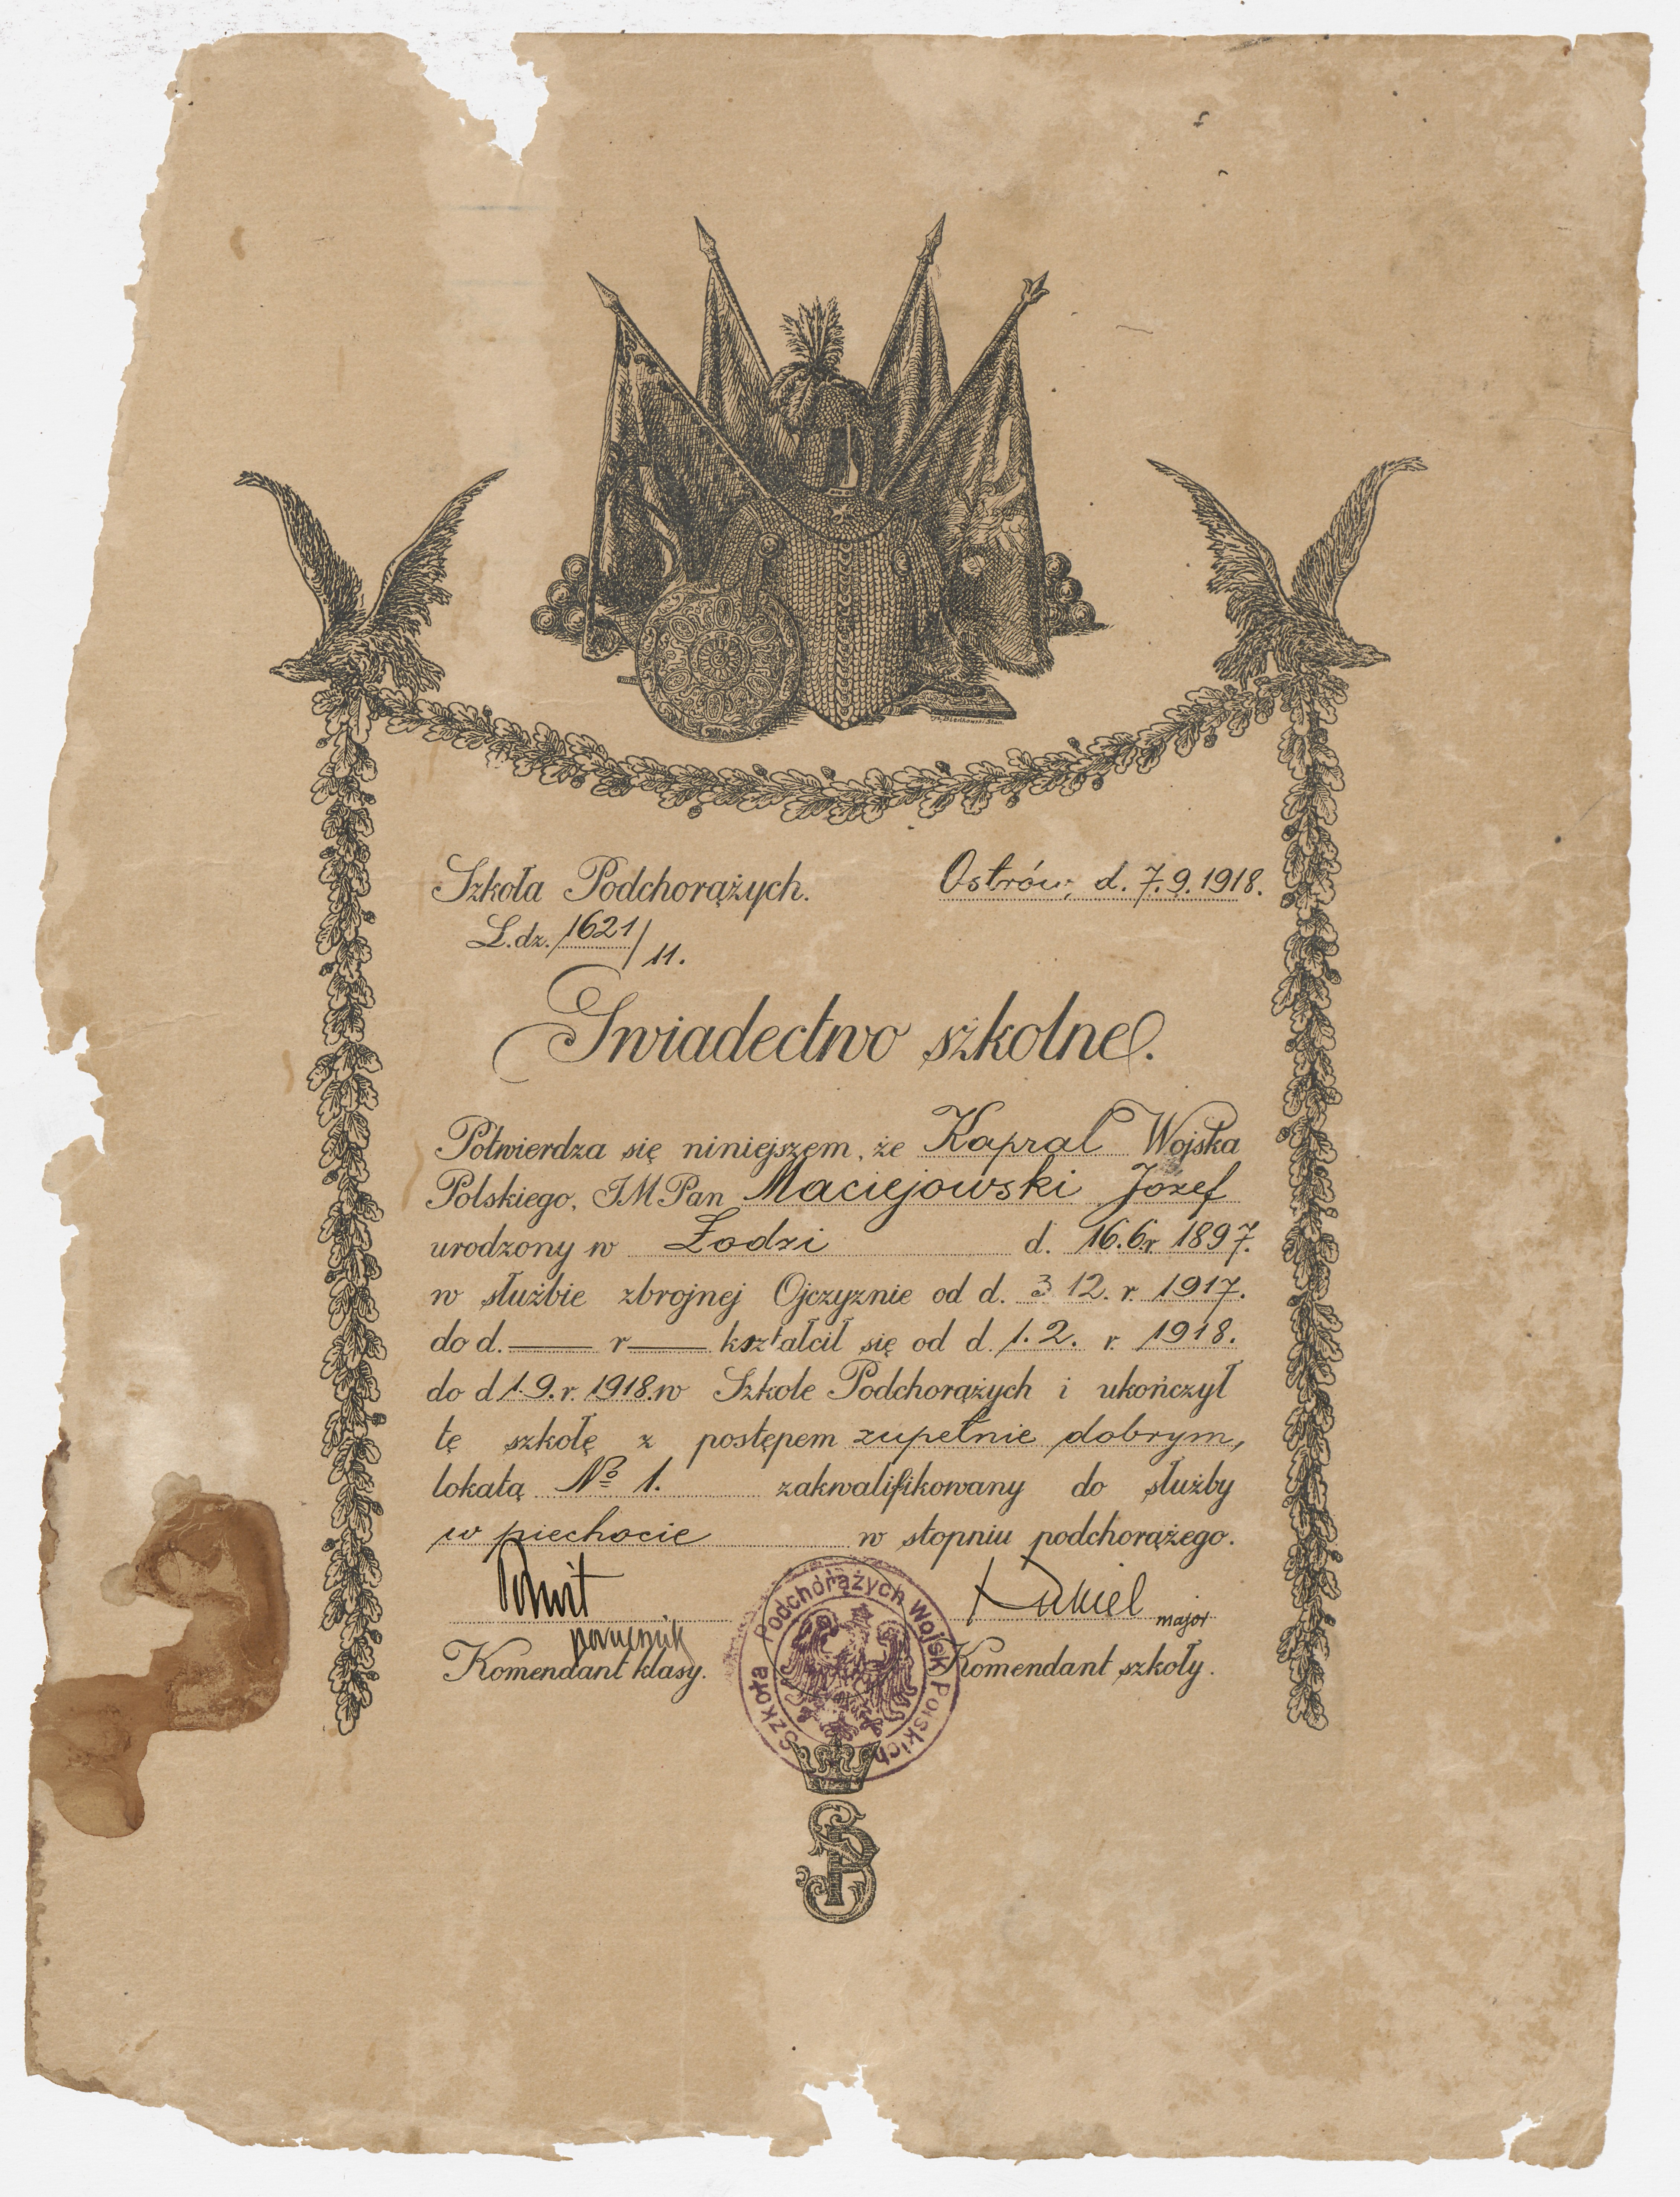 Szkoła Podchorążych.
Ostrów, d. 7.9.1918.
L.dz. 1621/11.
Świadectwo szkolne.
Potwierdza się niniejszem, że Kapral Wojska
Polskiego, JM Pan Maciejowski Józef
urodzony w Łodzi d. 16.6 r 1897.
w służbie zbrojnej Ojczyznie od d. 3 12. r. 1917.
do d. —— r —— kształcił się od d. 1.2. r. 1918.
do d 1.9. r. 1918. w Szkole Podchorążych i ukończył
tę szkołę z postępem zupełnie dobrym,
lokatą № 1. zakwalifikowany do służby
w piechocie w stopniu podchorążego.
Kukiel major
porucznik
Komendant klasy.
Komendant szkoły.
Szkoła Podchorążych Wojsk Polskich
SP